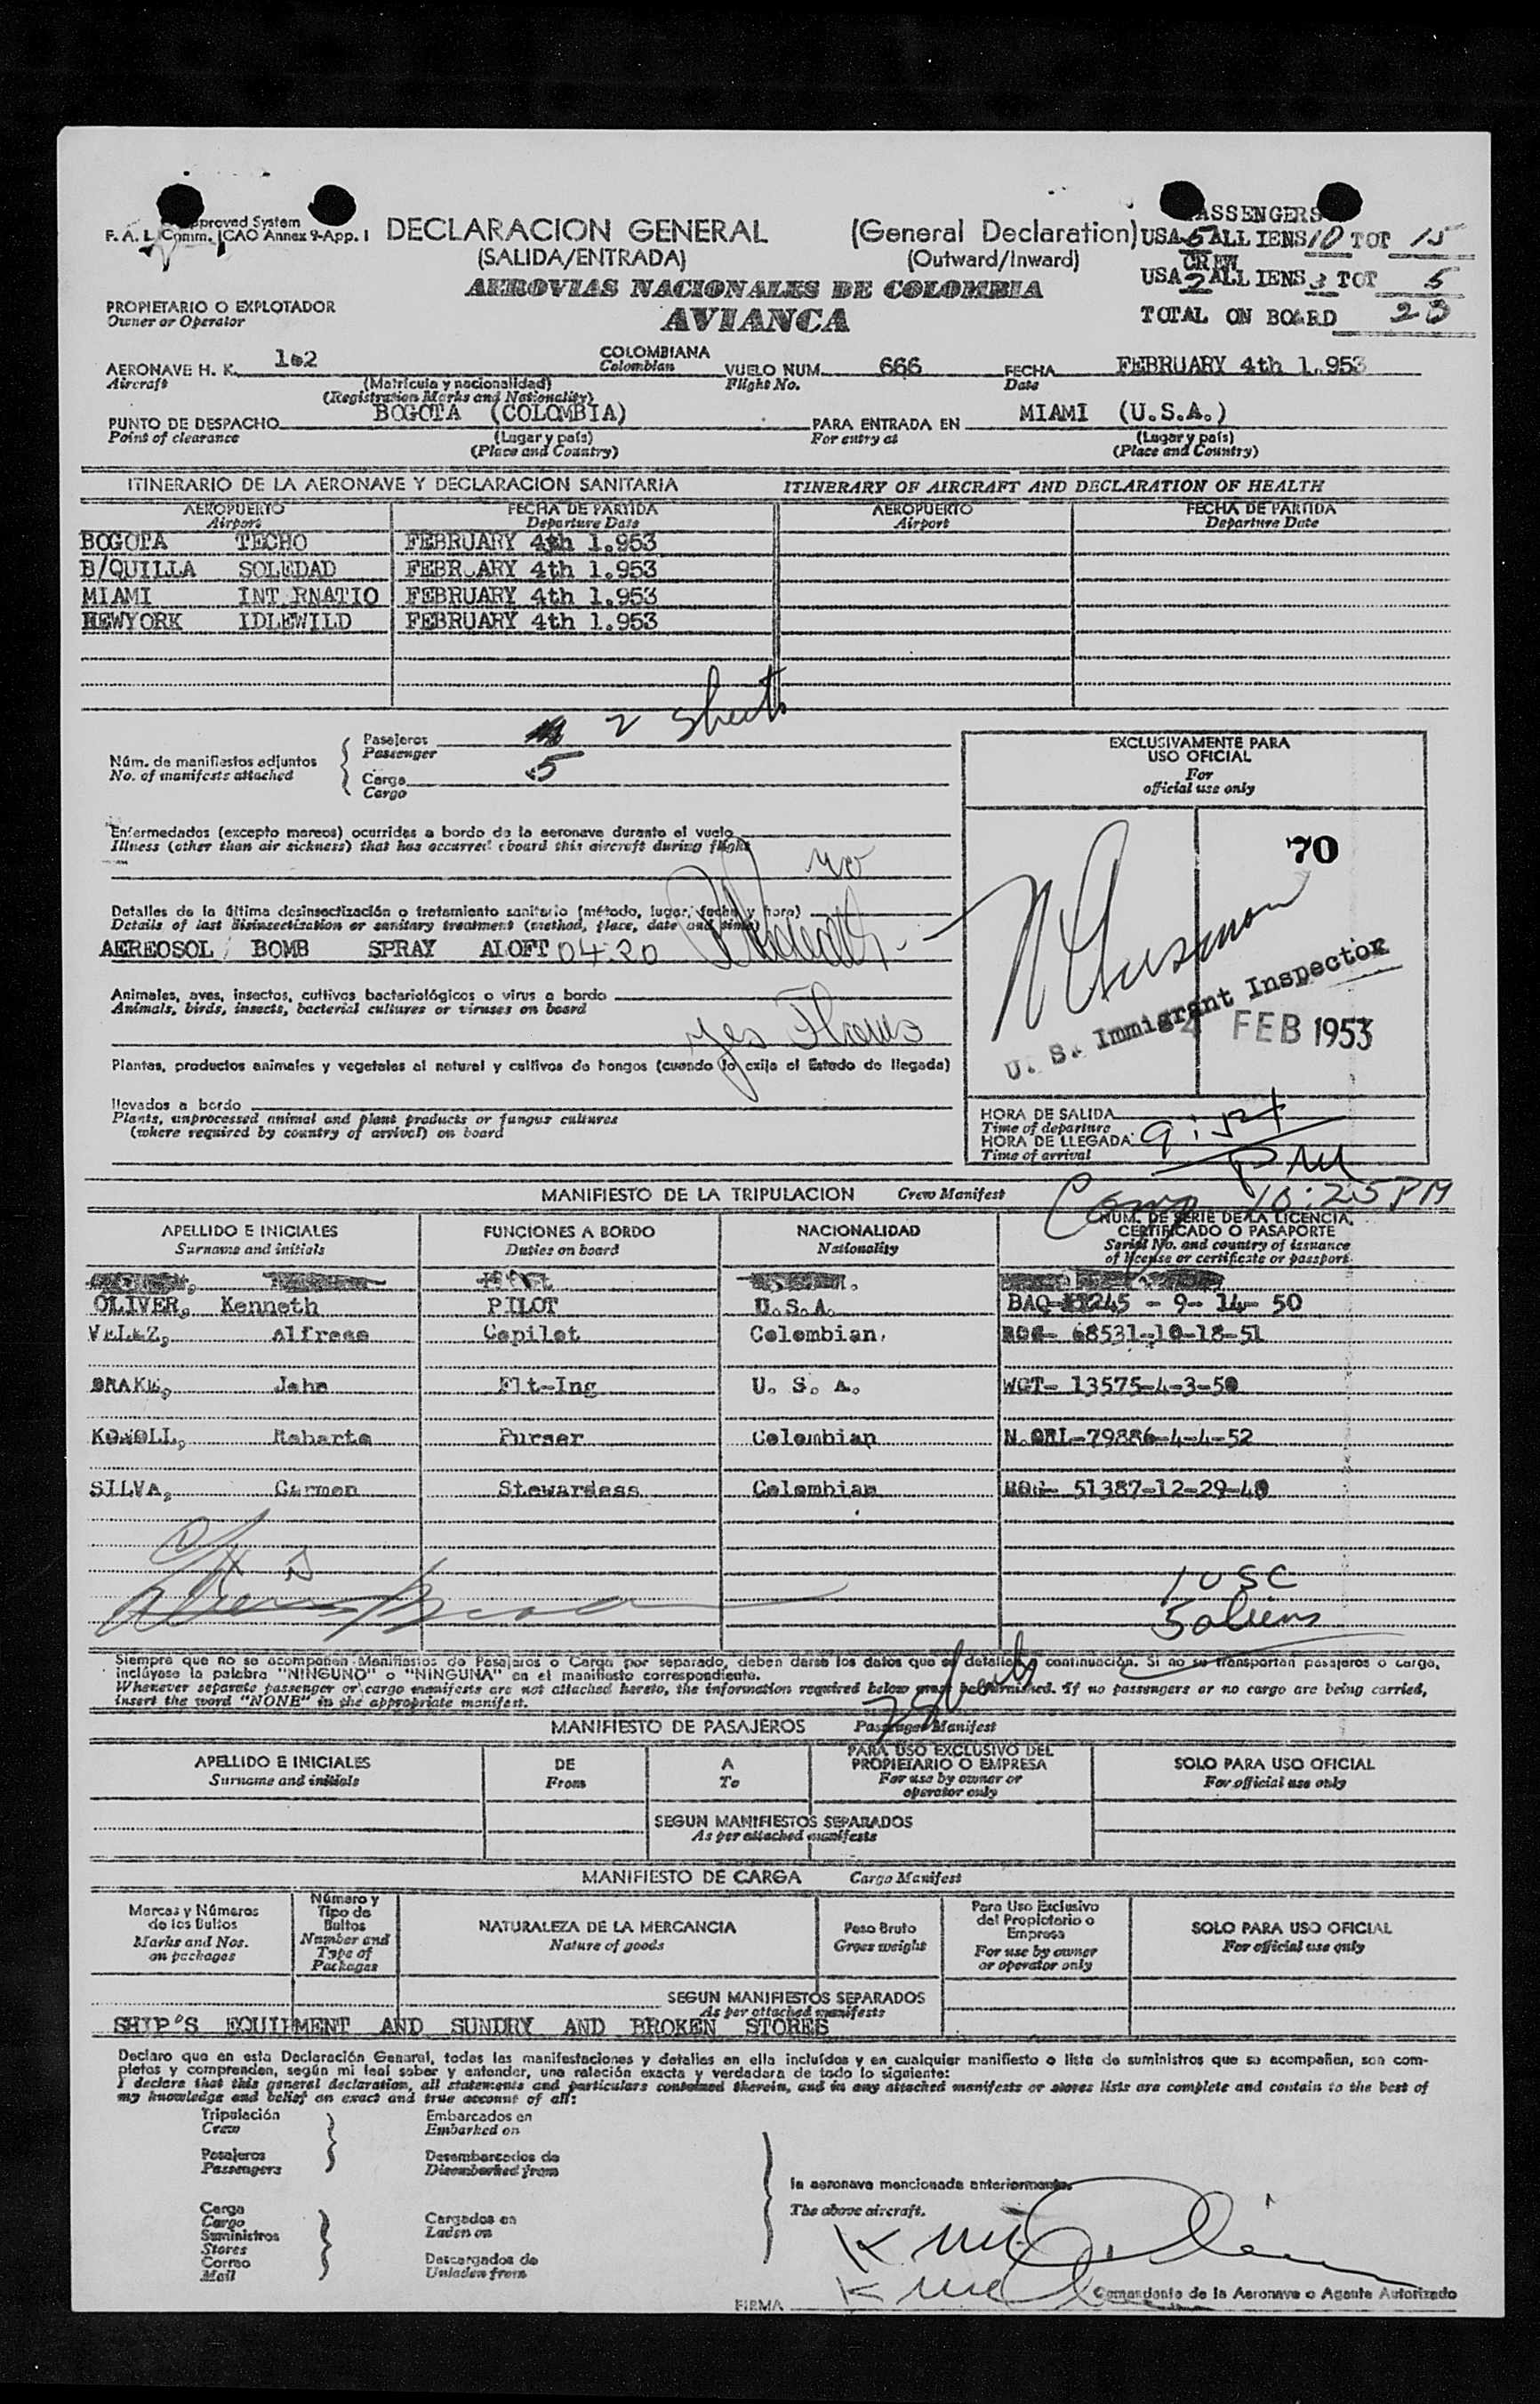 Approved System
F. A. L. Comm. ICAO Annex 9-App. 1
DECLARACION GENERAL (General Declaration)
(SALIDA/ENTRADA) (Outward/Inward)
PASSENGERS
USA 5 ALLIENS 10 TOT 15
CREW
USA 2 ALLIENS 3 TOT 5
TOTAL ON BOARD 20
AEROVIAS NACIONALES DE COLOMBIA
AVIANCA
PROPIETARIO O EXPLOTADOR
Owner or Operator
AERONAVE H. K. 162 COLOMBIANA VUELO NUM. 666 FECHA FEBRUARY 4th 1.953
Aircraft Colombian Flight No. Date
(Matrícula y nacionalidad)
(Registration Marks and Nationality)
PUNTO DE DESPACHO BOGOTA (COLOMBIA) PARA ENTRADA EN MIAMI (U.S.A.)
Point of clearance (Lugar y país) For entry at (Lugar y país)
(Place and Country) (Place and Country)
ITINERARIO DE LA AERONAVE Y DECLARACION SANITARIA ITINERARY OF AIRCRAFT AND DECLARATION OF HEALTH
AEROPUERTO FECHA DE PARTIDA AEROPUERTO FECHA DE PARTIDA
Airport Departure Date Airport Departure Date
BOGOTA TECHO FEBRUARY 4th 1.953
B/QUILLA SOLEDAD FEBR ARY 4th 1.953
MIAMI INT RNATIO FEBRUARY 4th 1.953
NEWYORK IDLEWILD FEBRUARY 4th 1.953
Núm. de manifiestos adjuntos
No. of manifests attached
Pasajeros 2 sheets
Passenger
Carga 5
Cargo
Enfermedades (excepto mareos) ocurridas a bordo de la aeronave durante el vuelo
Illness (other than air sickness) that has occurred aboard this aircraft during flight
no
Detalles de la última desinsectización o tratamiento sanitario (método, lugar, fecha y hora)
Details of last disinsectization or sanitary treatment (method, place, date and time)
AEREOSOL BOMB SPRAY ALOFT 0420
Animales, aves, insectos, cultivos bacteriológicos o virus a bordo
Animals, birds, insects, bacterial cultures or viruses on board
yes
Plantas, productos animales y vegetales al natural y cultivos de hongos (cuando lo exija el Estado de llegada)
llevados a bordo
Plants, unprocessed animal and plant products or fungus cultures
(where required by country of arrival) on board
EXCLUSIVAMENTE PARA
USO OFICIAL
For
official use only
70
U. S. Immigrant Inspector
4 FEB 1953
HORA DE SALIDA
Time of departure
HORA DE LLEGADA 9:57
Time of arrival PM
Comp 10:25 PM
MANIFIESTO DE LA TRIPULACION Crew Manifest
APELLIDO E INICIALES FUNCIONES A BORDO NACIONALIDAD NUM. DE SERIE DE LA LICENCIA,
CERTIFICADO O PASAPORTE
Surname and initials Duties on board Nationality Serial No. and country of issuance
of license or certificate or passport
OLIVER, Kenneth PILOT U.S.A. 245 - 9- 14- 50
VELEZ, Alfreso Copilot Colombian. 68531-10-18-51
DRAKE, John Flt-Ing U. S. A. WGT- 13575-4-3-50
Roberto Purser Colombian 79886-4-4-52
SILVA, Carmen Stewardess Colombian BOG- 51387-12-29-49
1 USC
5 aliens
Siempre que no se acompañen Manifiestos de Pasajeros o Carga por separado, deben darse los datos que se detallan a continuación. Si no se transportan pasajeros o carga,
inclúyase la palabra "NINGUNO" o "NINGUNA" en el manifiesto correspondiente.
Whenever separate passenger or cargo manifests are not attached hereto, the information required below must be furnished. If no passengers or no cargo are being carried,
insert the word "NONE" in the appropriate manifest.
2 sheets
MANIFIESTO DE PASAJEROS Passenger Manifest
APELLIDO E INICIALES DE A PARA USO EXCLUSIVO DEL SOLO PARA USO OFICIAL
PROPIETARIO O EMPRESA
Surname and initials From To For use by owner or For official use only
operator only
SEGUN MANIFIESTOS SEPARADOS
As per attached manifests
MANIFIESTO DE CARGA Cargo Manifest
Marcas y Números
de los Bultos
Marks and Nos.
on packages
Número y
Tipo de
Bultos
Number and
Type of
Packages
NATURALEZA DE LA MERCANCIA
Nature of goods
Peso Bruto
Gross weight
Para Uso Exclusivo
del Propietario o
Empresa
For use by owner
or operator only
SOLO PARA USO OFICIAL
For official use only
SEGUN MANIFIESTOS SEPARADOS
As per attached manifests
SHIP'S EQUIPMENT AND SUNDRY AND BROKEN STORES
Declaro que en esta Declaración General, todas las manifestaciones y detalles en ella incluídos y en cualquier manifiesto o lista de suministros que se acompañan, son com-
pletos y comprenden, según mi leal saber y entender, una relación exacta y verdadera de todo lo siguiente:
I declare that this general declaration, all statements and particulars contained therein, and in any attached manifests or stores lists are complete and contain to the best of
my knowledge and belief an exact and true account of all:
Tripulación
Crew
Pasajeros
Passengers
Embarcados en
Embarked on
Desembarcados de
Disembarked from
Carga
Cargo
Suministros
Stores
Correo
Mail
Cargados en
Laden on
Descargados de
Unladen from
la aeronave mencionada anteriormente.
The above aircraft.
FIRMA Comandante de la Aeronave o Agente Autorizado